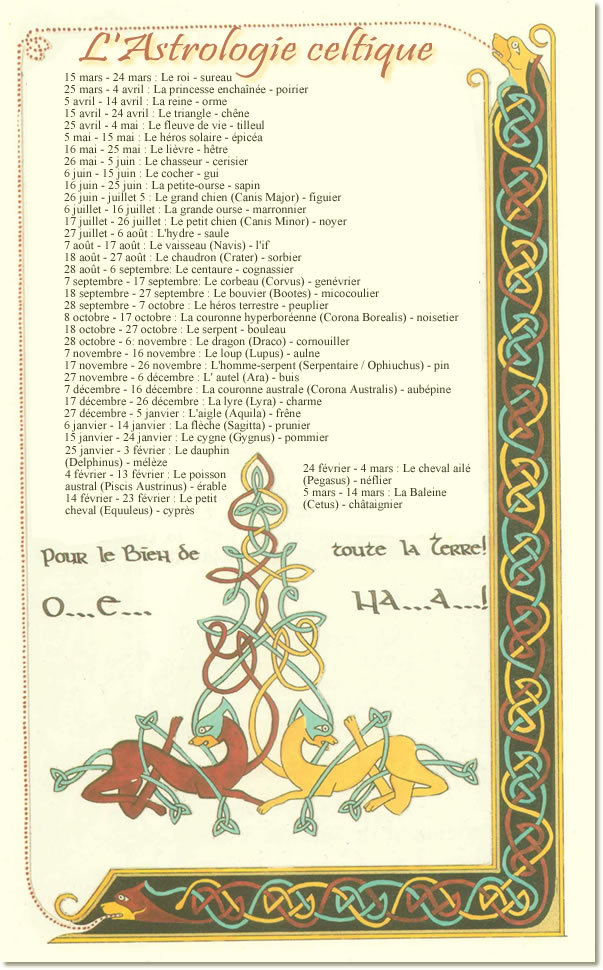 L'Astrologie celtique
15 mars - 24 mars : Le roi - sureau
25 mars - 4 avril : La princesse enchaînée - poirier
5 avril - 14 avril : La reine - orme
15 avril - 24 avril : Le triangle - chêne
25 avril - 4 mai : Le fleuve de vie - tilleul
5 mai - 15 mai : Le héros solaire - épicéa
16 mai - 25 mai : Le lièvre - hêtre
26 mai - 5 juin : Le chasseur - cerisier
6 juin - 15 juin : Le cocher - gui
16 juin - 25 juin : La petite-ourse - sapin
26 juin - juillet 5 : Le grand chien (Canis Major) - figuier
6 juillet - 16 juillet : La grande ourse - marronnier
17 juillet - 26 juillet : Le petit chien (Canis Minor) - noyer
27 juillet - 6 août : L'hydre - saule
7 août - 17 août : Le vaisseau (Navis) - l'if
18 août - 27 août : Le chaudron (Crater) - sorbier
28 août - 6 septembre: Le centaure - cognassier
7 septembre - 17 septembre: Le corbeau (Corvus) - genévrier
18 septembre - 27 septembre : Le bouvier (Bootes) - micocoulier
28 septembre - 7 octobre : Le héros terrestre - peuplier
8 octobre - 17 octobre : La couronne hyperboréenne (Corona Borealis) - noisetier
18 octobre - 27 octobre : Le serpent - bouleau
28 octobre - 6: novembre : Le dragon (Draco) - cornouiller
7 novembre - 16 novembre : Le loup (Lupus) - aulne
17 novembre - 26 novembre : L'homme-serpent (Serpentaire / Ophiuchus) - pin
27 novembre - 6 décembre : L' autel (Ara) - buis
7 décembre - 16 décembre : La couronne australe (Corona Australis) - aubépine
17 décembre - 26 décembre : La lyre (Lyra) - charme
27 décembre - 5 janvier : L'aigle (Aquila) - frêne
6 janvier - 14 janvier : La flèche (Sagitta) - prunier
15 janvier - 24 janvier : Le cygne (Gygnus) - pommier
25 janvier - 3 février : Le dauphin
(Delphinus) - mélèze
4 février - 13 février : Le poisson
austral (Piscis Austrinus) - érable
14 février - 23 février : Le petit
cheval (Equuleus) - cyprès
24 février - 4 mars : Le cheval ailé
(Pegasus) - néflier
5 mars - 14 mars : La Baleine
(Cetus) - châtaignier
Pour le Bien de toute la Terre!
O...E... HA...A...!